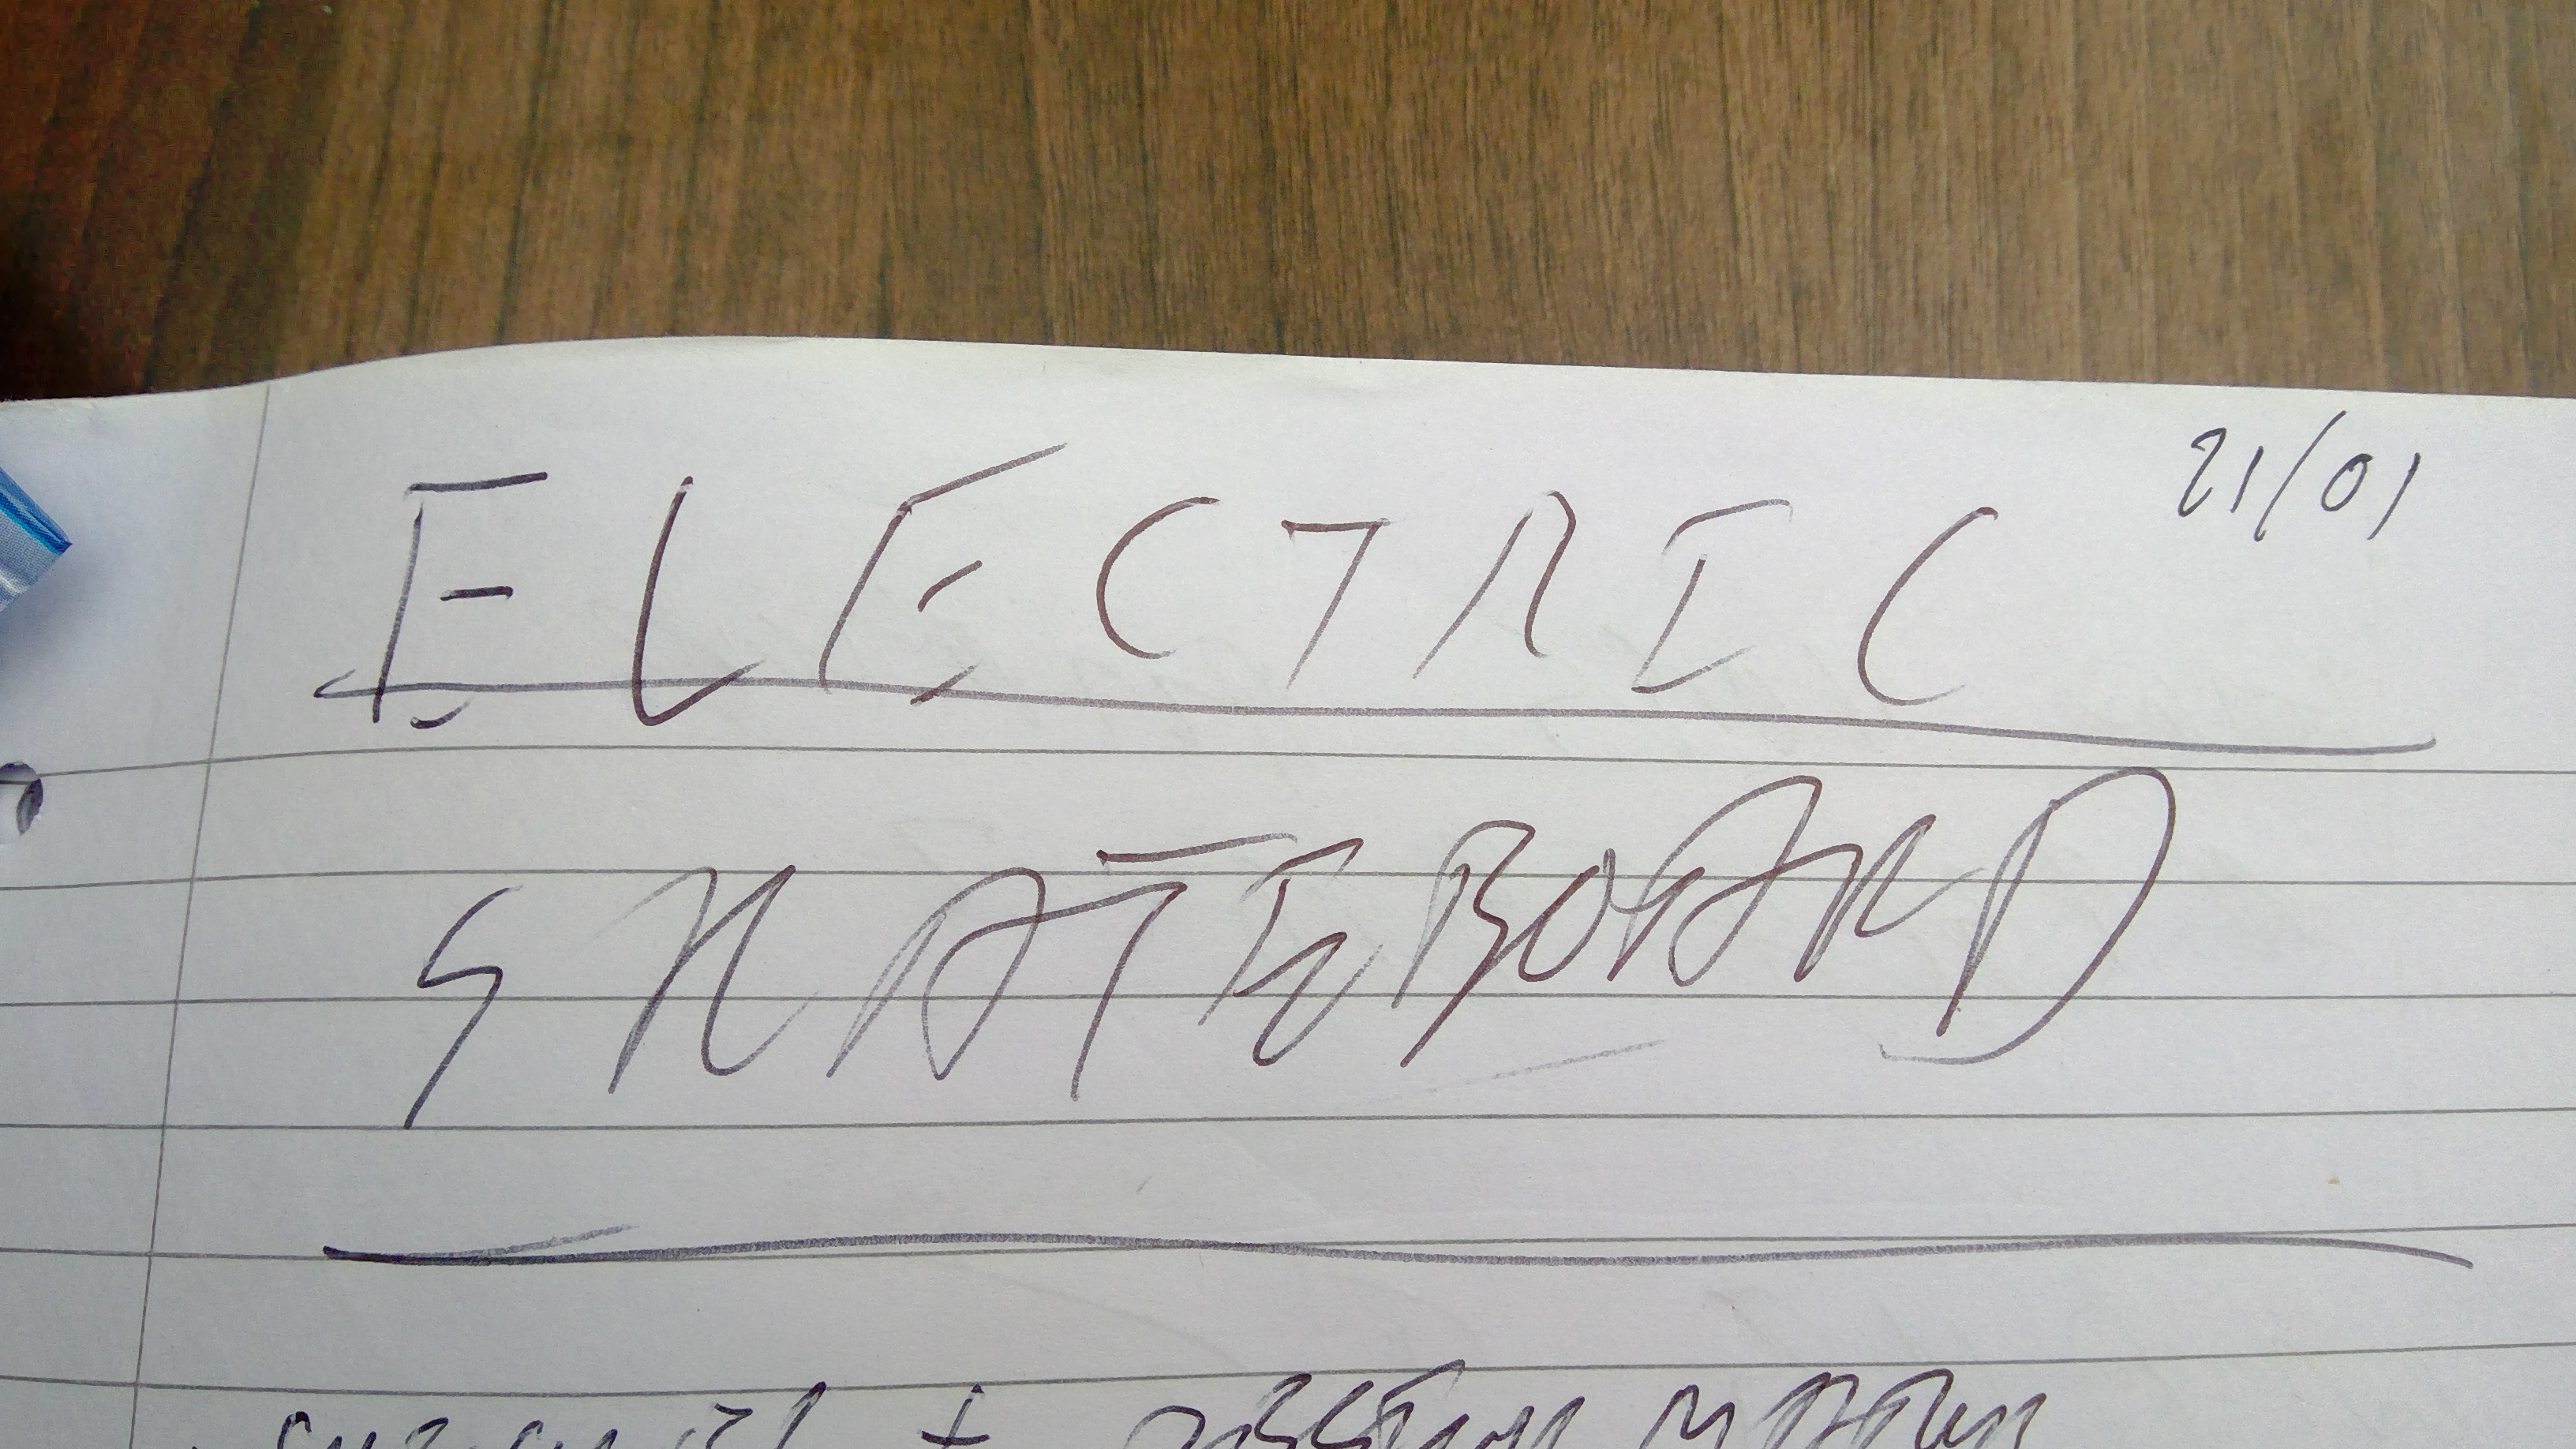 21/01
ELECTRIC
SKATEBOARD